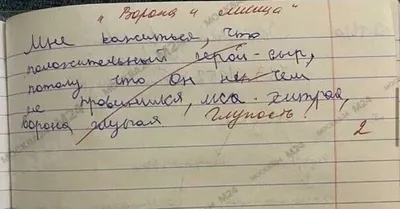 "Ворона и лисица"
Мне кажиться, что
положительный герой - сыр,
потому что он не чем
не провинился, лиса - хитрая,
ворона глупая Глупость
2